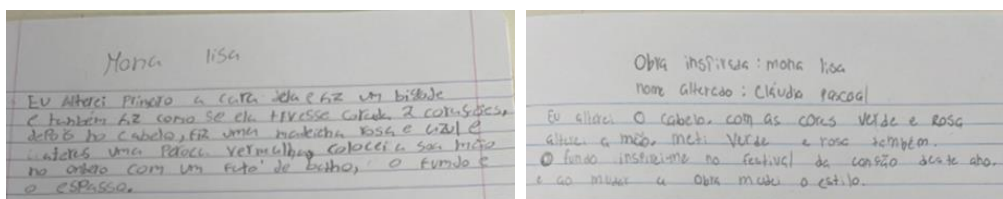 Mona lisa
Eu Alterei a cara dela e fiz um bigode
e também fiz como se ela tivesse 2 corações,
no cabelo, fiz uma rosa e azul e
uma vermelha, coloquei a sua mão
no com um fato de banho, o fundo e
o espasso.
Obra inspirada : mona lisa
nome alterado : Cláudia Pascoal
Eu alterei o cabelo, com as cores verde e rosa
alterei a mão, meti verde e rosa também.
O fundo inspirei-me no festival da consão deste ano.
e ao mudar a obra mudei o estilo.